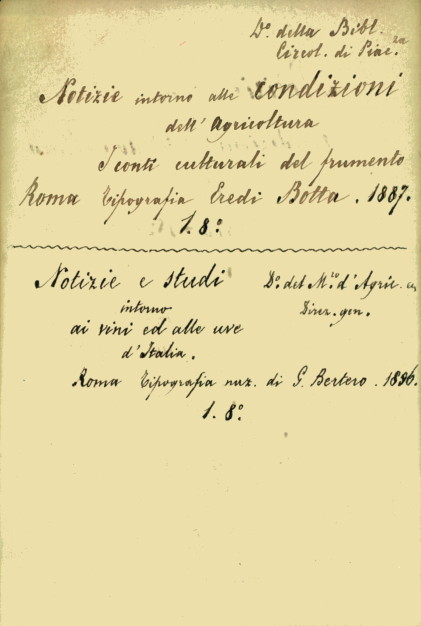 Do. della Bibl.
Circol. di Piac.za
Notizie intorno alle condizioni
dell' Agricoltura
I conti culturali del frumento
Roma Tipografia Eredi Botta. 1887.
1. 8o.
Notizie e studi
Do. del M.ro d'Agric.
Direz. gen.
intorno
ai vini ed alle uve
d'Italia.
Roma Tipografia naz. di G. Bertero. 1896.
1. 8o.